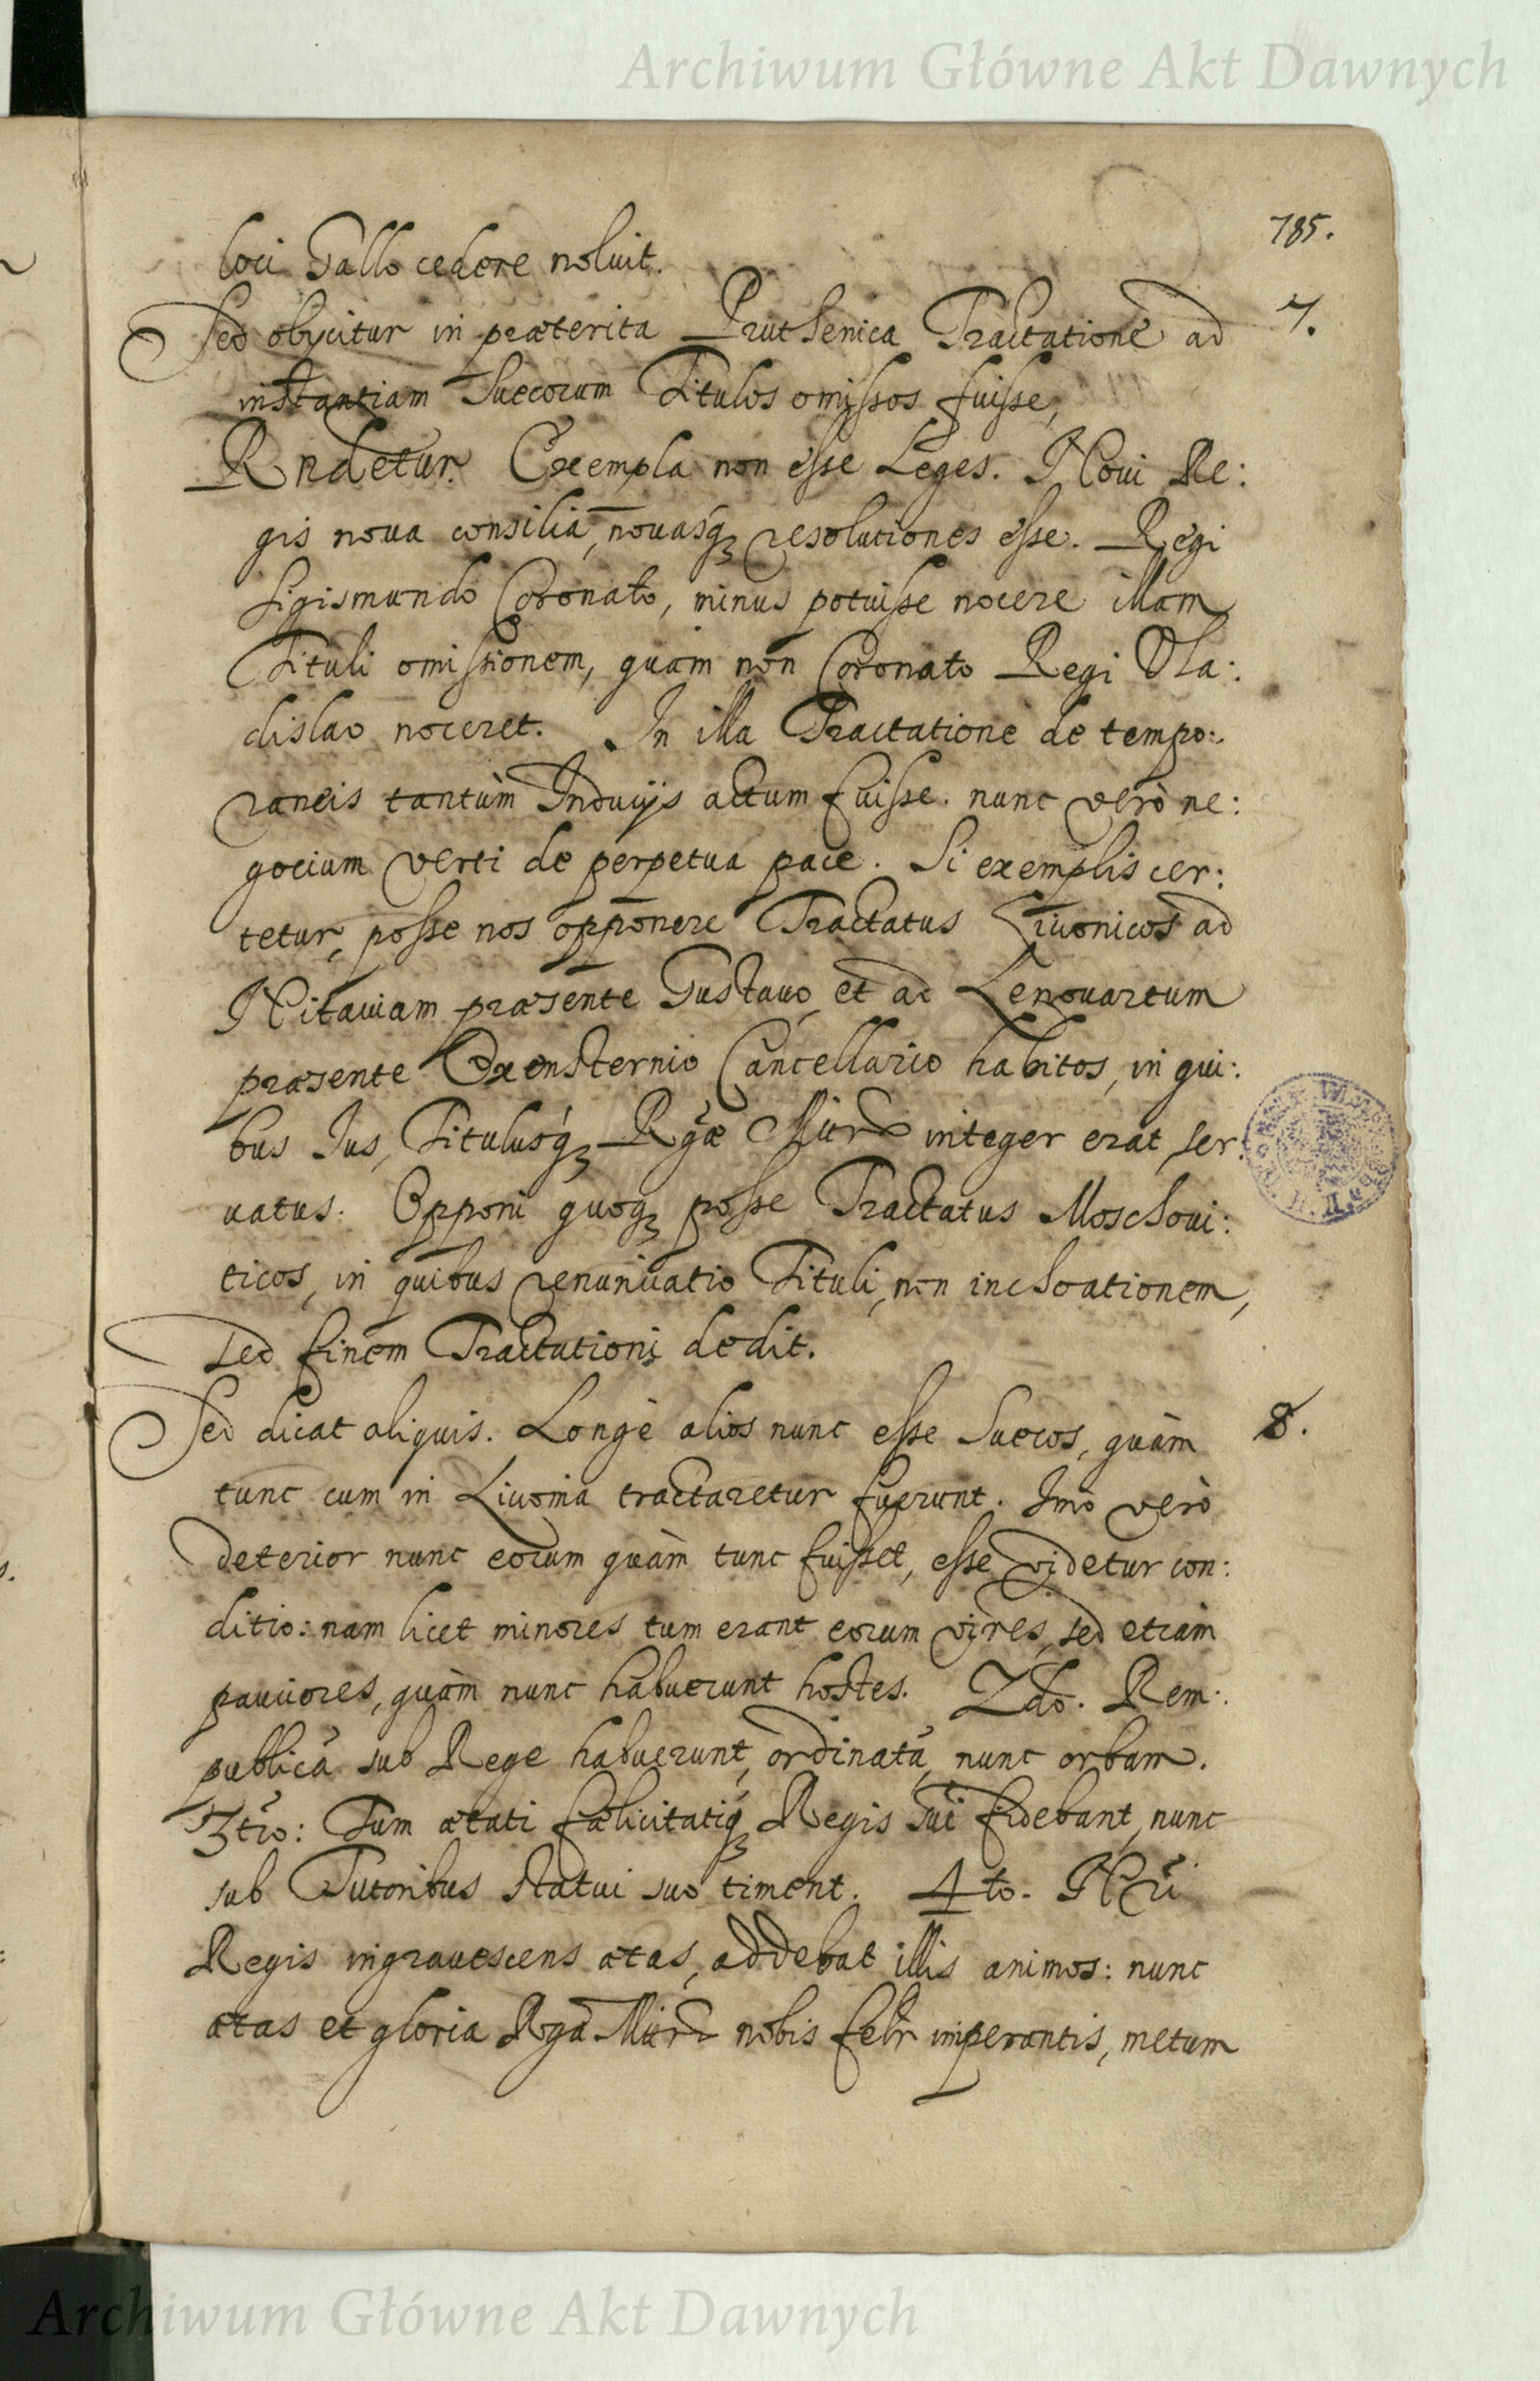 Archiwum Główne Akt Dawnych
785.
loci Gallo cedere noluit.
Sed obijcitur in præterita Pruthenica Tractatione ad 7.
instantiam Suecorum Titulos omissos fuisse,
Rndetur. Exempla non esse Leges. Novi Re:
gis noua consilia, nouasq3 resolutiones esse. Regi
Sigismundo Coronato, minus potuisse nocere illam
Tituli omissionem, quàm non Coronato Regi Vla:
dislao noceret. In illa Tractatione de tempo:
raneis tantùm Inducijs actum fuisse. nunc verò ne:
gocium verti de perpetua pace. Si exemplis cer:
tetur, posse nos opponere Tractatus Livonicos ad
Mitauiam præsente Gustauo, et ad Lenouartum
præsente Oxensternio Cancellario habitos, in qui:
bus Ius, Titulusq3 Rgæ Mttis integer erat ser:
uatus. Opponi quoq3 posse Tractatus Moschoui:
ticos, in quibus renunciatio Tituli, non inchoationem,
sed finem Tractationi dedit.
Sed dicat aliquis. Longè alios nunc esse Suecos, quàm 8.
tunc cum in Livonia tractaretur fuerunt. Imò verò
deterior nunc eorum quàm tunc fuisset, esse videtur con:
ditio: nam licet minores tum erant eorum vires, sed etiam
pauciores, quàm nunc habuerunt hostes. 2do. Rem:
publicã sub Rege habuerunt, ordinatã, nunc orbam.
3tio: Tum ætati fælicitatiq3 Regis sui fidebant, nunc
sub Tutoribus statui suo timent. 4to. Nri
Regis ingrauescens ætas, addebat illis animos: nunc
ætas et gloria Rgæ Mttis nobis felr imperantis, metum
Archiwum Główne Akt Dawnych